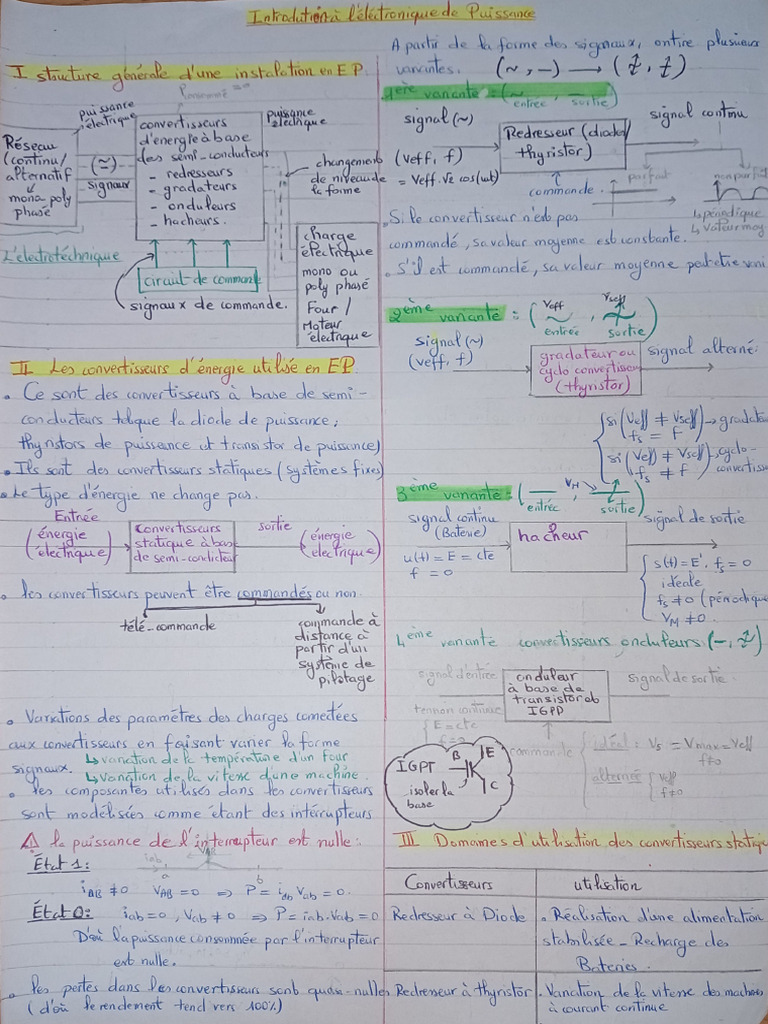 Introdution à l'électronique de Puissance
I structure générale d'une instalation en EP.
Pconsommé = 0
puissance
électrique
Réseau
(continu/
alternatif
mono poly
phase
(≃)
signaux
convertisseurs
d'énergie à base
des semi-conducteurs
- redresseurs
- gradateurs
- onduleurs
- hacheurs.
puissance
électrique
changement
de niveau de
la forme
charge
électrique
mono ou
poly phasé
Four /
Moteur
électrique
L'électrotéchnique
circuit de command
signaux de commande.
II Les convertisseurs d'énergie utilisé en EP.
• Ce sont des convertisseurs à base de semi-
conducteurs telque la diode de puissance;
thyristors de puissance et transistor de puissance)
• Ils sont des convertisseurs statiques (systèmes fixes)
• Le type d'énergie ne change pas.
Entrée
(énergie
électrique)
convertisseurs
statique à base
de semi-conducteur
sortie
(énergie
électrique)
• les convertisseurs peuvent être commandés ou non.
télé-commande
commande à
distance à
partir d'un
système de
pilotage
• Variations des paramètres des charges connectées
aux convertisseurs en faisant varier la forme
signaux.
↳ variation de la température d'un four
↳ variation de la vitesse d'une machine.
• les composantes utilisés dans les convertisseurs
sont modélisées comme étant des intérrupteurs
⚠ la puissance de l'interrupteur est nulle:
État 1:
iab
VAB
a
b
iAB ≠ 0 VAB = 0 ⇒ P = iab Vab = 0.
État 0: iab = 0, Vab ≠ 0 ⇒ P = iab. Vab = 0
D'où la puissance consommée par l'interrupteur
est nulle.
• les pertes dans les convertisseurs sont quasi-nulles
(d'où le rendement tend vers 100%)
A partir de la forme des signaux, ontire plusieur
variantes. (~, -) → (≁, ⌿)
1ère variante: (~ entrée, — sortie)
signal (~)
(Veff, f)
= Veff.√2 cos(ωt)
Redresseur (diode/
thyristor)
signal continu
commande.
parfait
non parfait
↳ périodique
↳ Valeur moy
. Si le convertisseur n'est pas
commandé, sa valeur moyenne est constante.
. S'il est commandé, sa valeur moyenne peut être vari
2ème variante: (Veff ~ entrée, Vseff ≁ sortie)
signal (~)
(Veff, f)
gradateur ou
cyclo convertisseur
(thyristor)
signal alterné:
si (Veff ≠ Vseff) → gradate
fs = f
si (Veff ≠ Vseff) → cyclo-
fs ≠ f convertisse
3ème variante: (— entrée, VM sortie)
signal continu
(Baterie)
u(t) = E = cte
f = 0
hacheur
signal de sortie
s(t) = E', fs = 0
idéale
fs ≠ 0 (périodique
VM ≠ 0.
4ème variante convertisseurs onduleurs (-, ≁)
signal d'entrée
tension continue
E = cte
f = 0
onduleur
à base de
transistor ob
IGPP
signal de sortie.
commande
idéal: Vs = Vmax = Veff
f ≠ 0
alternée
Veff
f ≠ 0
IGPT
B
E
C
isoler la
base
III Domaines d'utilisation des convertisseurs statiq
Convertisseurs
utilisation
Redresseur à Diode
• Réalisation d'une alimentation
stabilisée - Recharge des
Bateries.
Redresseur à thyristor
• Variation de la vitesse des machines
à courant continue